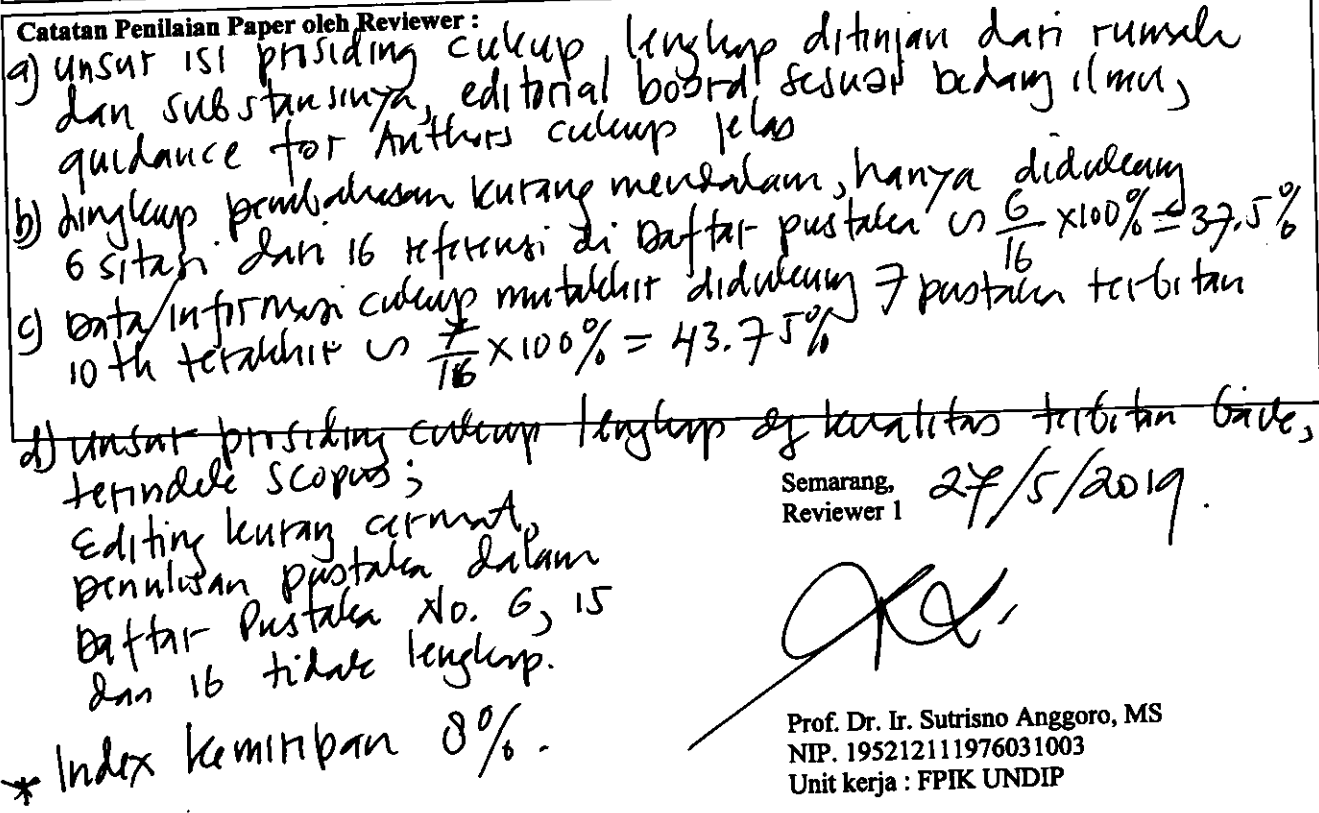 Catatan Penilaian Paper oleh Reviewer :
a) unsur isi prosiding cukup lengkap ditinjau dari rumah
dan substansinya, editorial board sesuai bidang ilmu,
guidance for Authors cukup jelas
b) Lingkup pembahasan kurang mendalam, hanya didukung
6 sitasi dari 16 referensi di Daftar pustaka ∽ 6/16 x100% = 37.5%
c) Data/informasi cukup mutakhir didukung 7 pustaka terbitan
10 th terakhir ∽ 7/16 x 100% = 43.75%
d) unsur prosiding cukup lengkap dg kualitas terbitan baik,
terindek Scopus;
Editing kurang cermat,
penulisan pustaka dalam
Daftar Pustaka No. 6, 15
dan 16 tidak lengkap.
* Index kemiripan 8%.
Semarang, 27/5/2019.
Reviewer 1
Prof. Dr. Ir. Sutrisno Anggoro, MS
NIP. 195212111976031003
Unit kerja : FPIK UNDIP